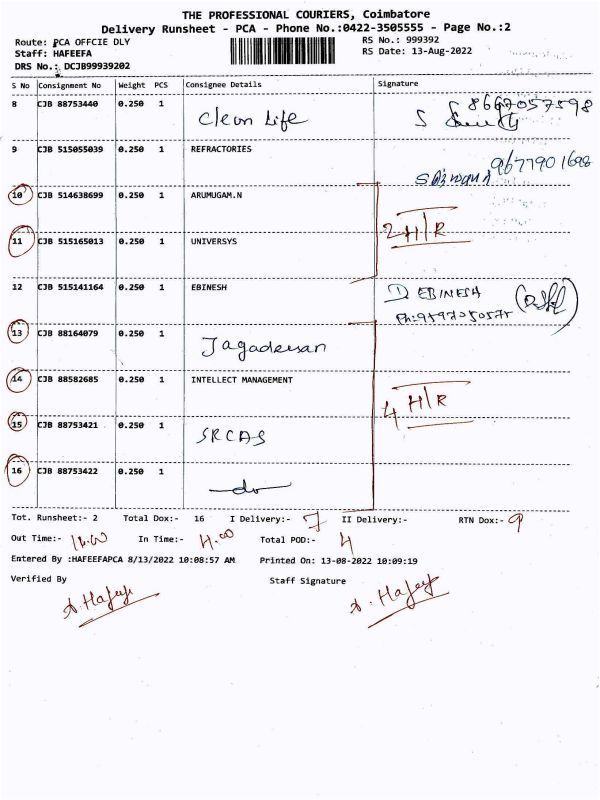 THE PROFESSIONAL COURIERS, Coimbatore
Delivery Runsheet - PCA - Phone No.:0422-3505555 - Page No.:2
Route: PCA OFFCIE DLY RS No.: 999392
Staff: HAFEEFA RS Date: 13-Aug-2022
DRS No.: DCJB99939202
S No Consignment No Weight PCS Consignee Details Signature
8 CJB 88753440 0.250 1 Clean Life 8667057598
9 CJB 515055039 0.250 1 REFRACTORIES 9677901698
10 CJB 514638699 0.250 1 ARUMUGAM.N
2 H/R
11 CJB 515165013 0.250 1 UNIVERSYS
12 CJB 515141164 0.250 1 EBINESH D EBINESH
Ph: 9597050575
13 CJB 88164079 0.250 1 Jagadeesan
14 CJB 88582685 0.250 1 INTELLECT MANAGEMENT
4 H/R
15 CJB 88753421 0.250 1 SRCAS
16 CJB 88753422 0.250 1 do
Tot. Runsheet:- 2 Total Dox:- 16 I Delivery:- 7 II Delivery:- RTN Dox:- 9
Out Time:- 11.00 In Time:- 4.00 Total POD:- 4
Entered By :HAFEEFAPCA 8/13/2022 10:08:57 AM Printed On: 13-08-2022 10:09:19
Verified By Staff Signature
A. Hafeefa A. Hafeefa